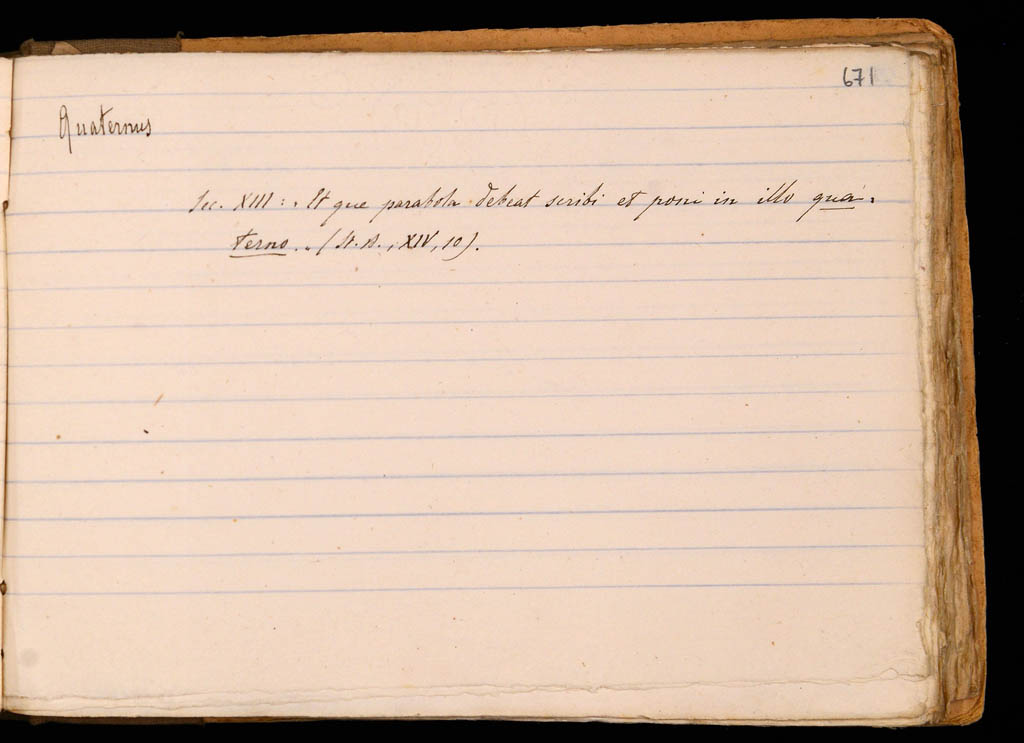 671
Quaternus
Sec. XIII: „ Et que parabola debeat scribi et poni in illo qua-
terno. „ (St. B., XIV, 10).